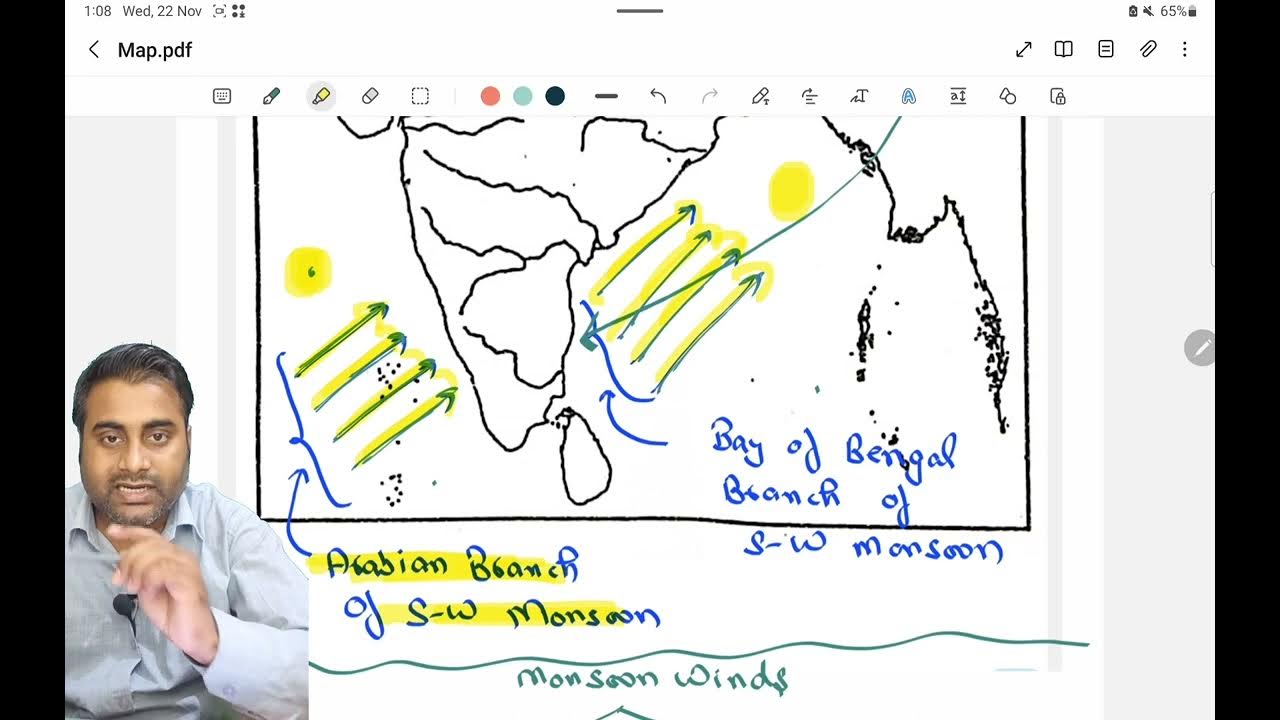 1:08 Wed, 22 Nov
65%
Map.pdf
Bay of Bengal
Branch of
S-W monsoon
Arabian Branch
of S-W Monsoon
monsoon winds